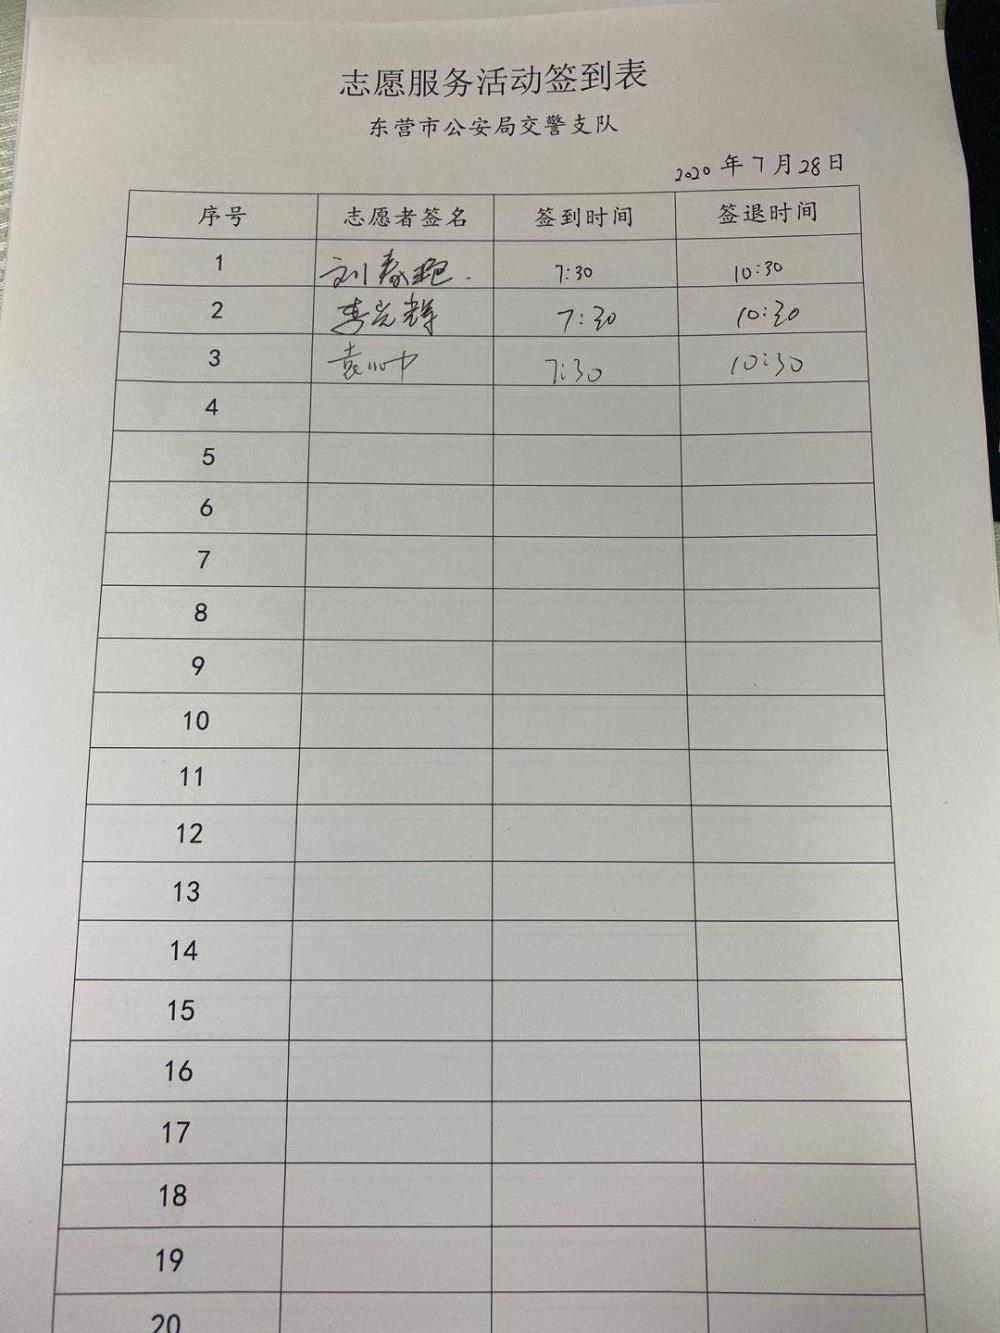 志愿服务活动签到表
东营市公安局交警支队
2020年7月28日
序号 志愿者签名 签到时间 签退时间
1 刘春艳. 7:30 10:30
2 李光辉 7:30 10:30
3 袁小中 7:30 10:30
4
5
6
7
8
9
10
11
12
13
14
15
16
17
18
19
20